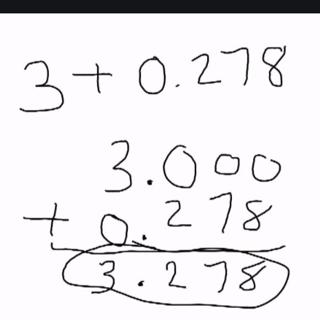 3 + 0.278
3.000
+ 0.278
3.278